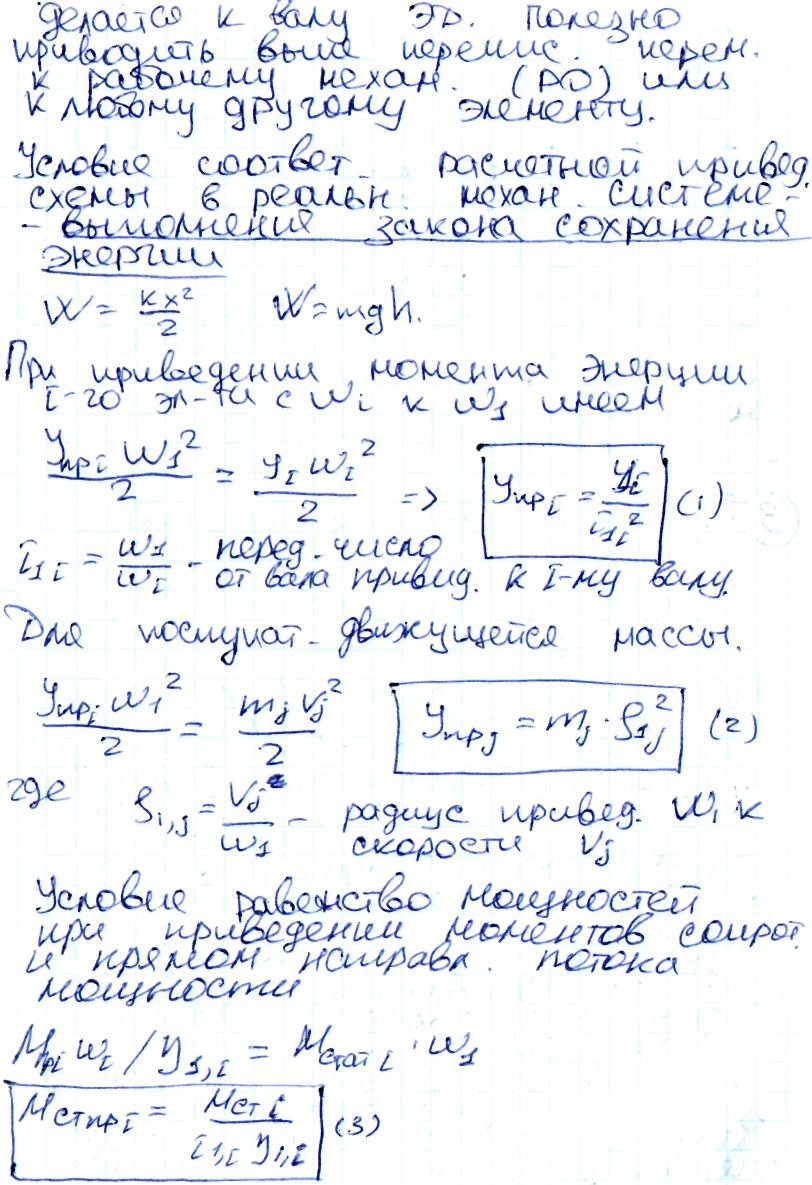 делается к валу ЭД. Полезно
приводить выше перечис. перем.
к рабочему механ. (РО) или
к любому другому элементу.
Условие соответ. расчетной привед.
схемы в реальн. механ. системе -
- выполнения закона сохранения
энергии
W = kx²/2 W = mgh.
При приведении момента энерции
i-го эл-ти с ωi к ω1 имеем
Jпрi ω1²/2 = Ji ωi²/2 => Jпрi = Ji/i1i² (1)
i1i = ω1/ωi - перед. число
от вала привид. к i-му валу.
Для поступат. движущейся массы.
Jпрj ω1²/2 = mj Vj²/2 Jпрj = mj · ρ1j² (2)
где ρi,j = Vj/ω1 - радиус привед. ωi к
скорости Vj
Условие равенство мощностей
при приведении моментов сопрот.
и прямом направл. потока
мощности
Mрi ωi / η1,i = Mстатi · ω1
Mстпрi = Mстi / i1,i η1,i (3)